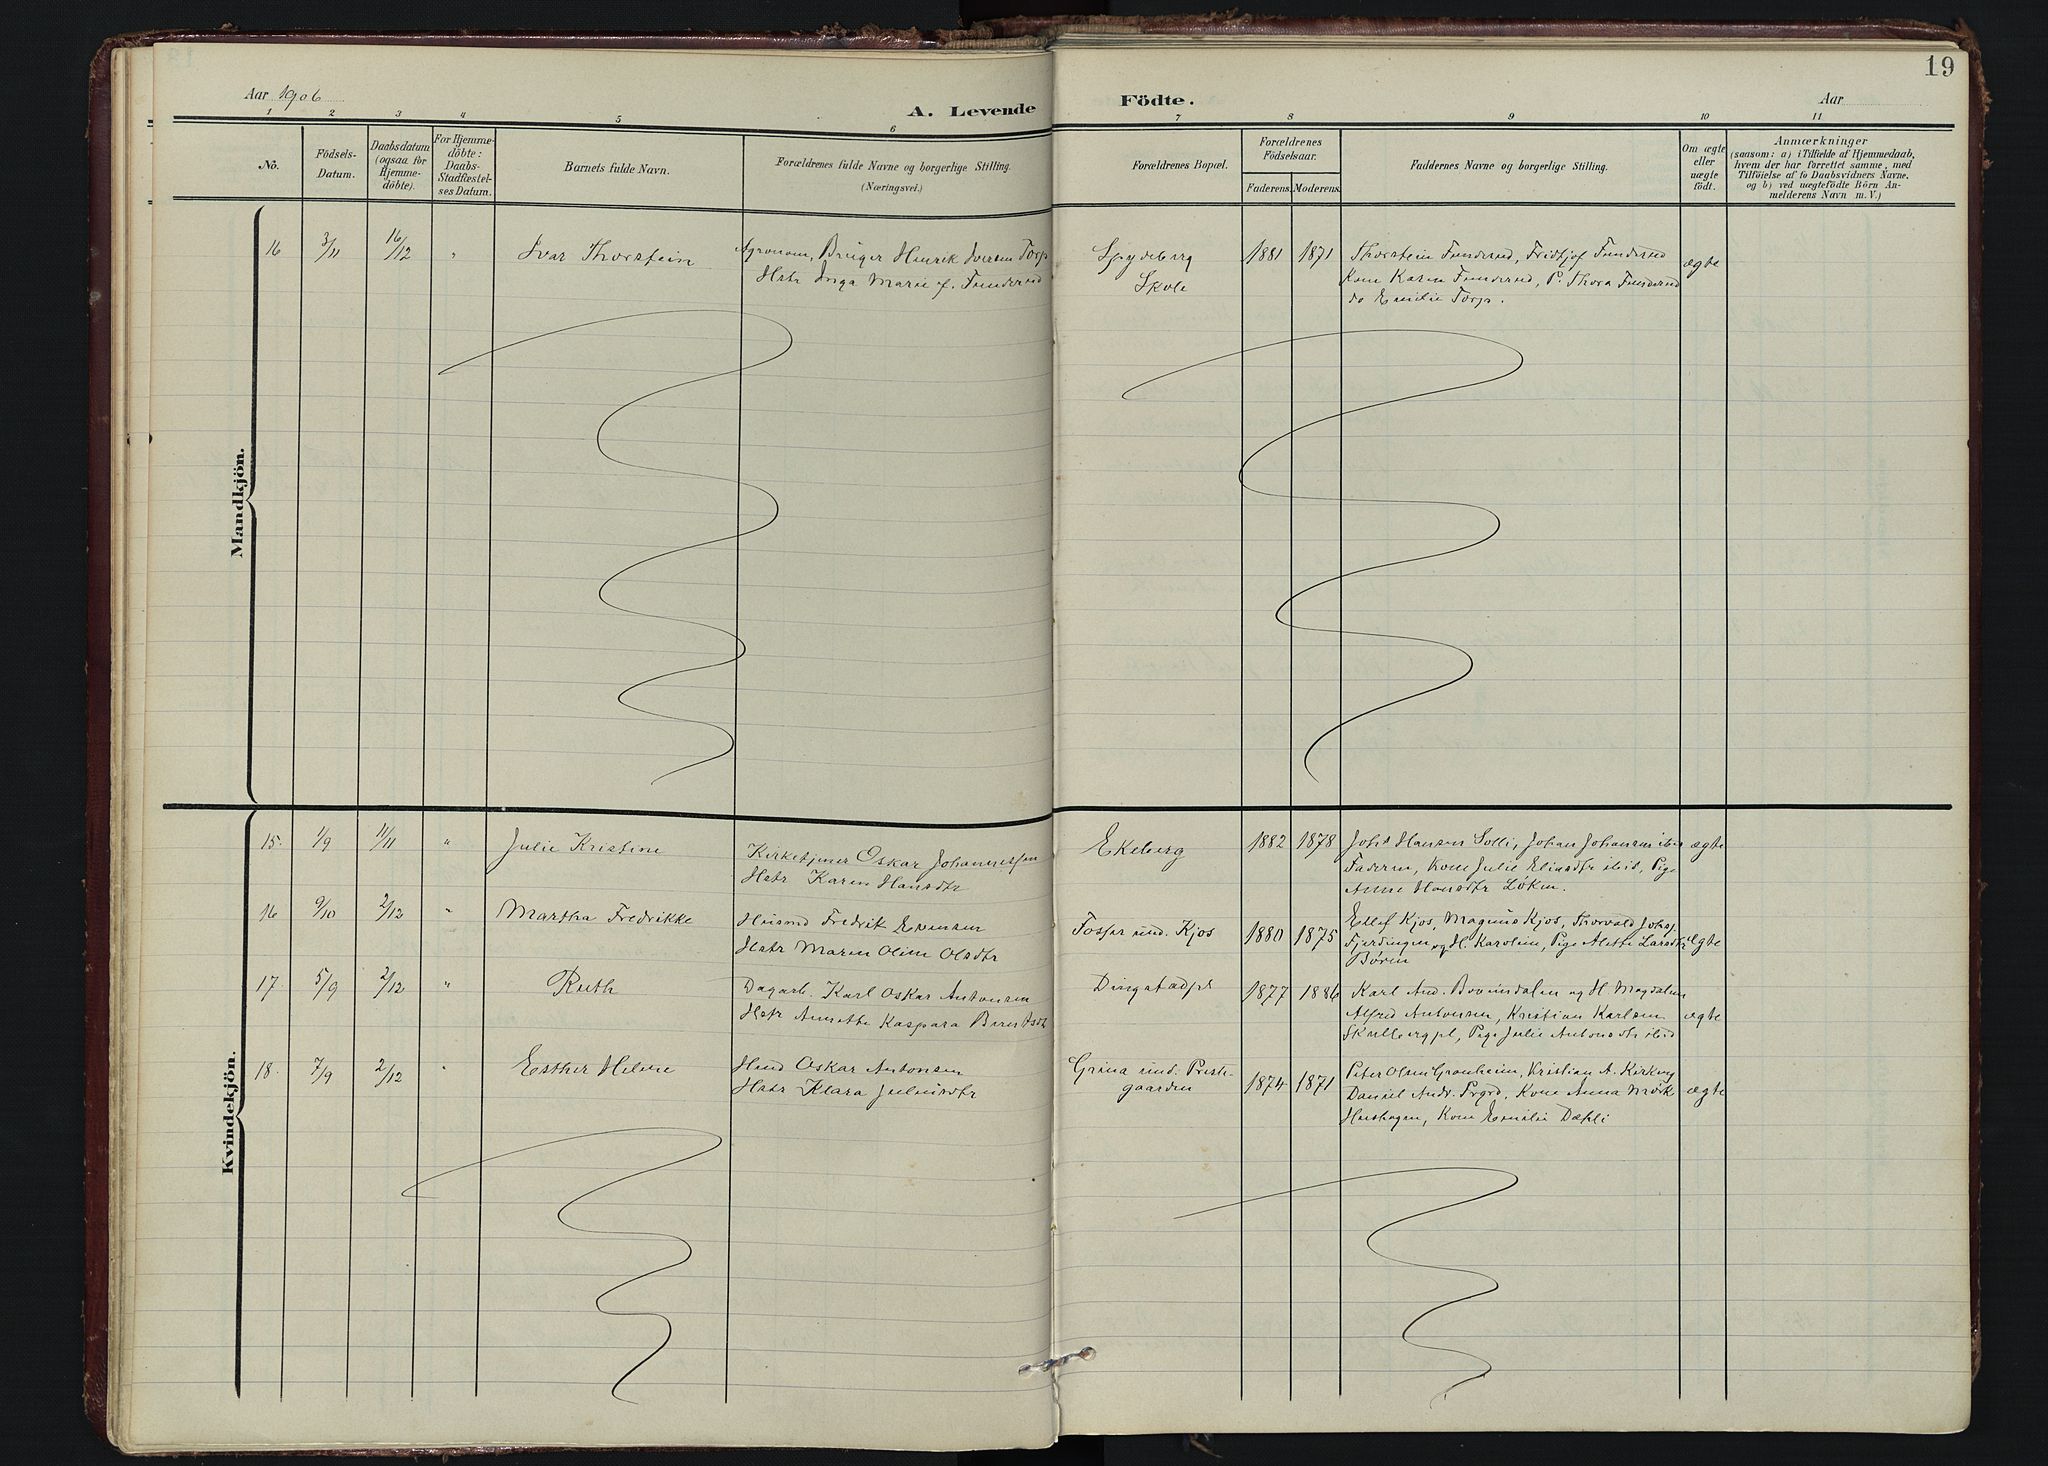 19
Aar 1906
A. Levende Födte.
Aar
1 2 3 4 5 6 7 8 9 10 11
No.
Födsels-
Datum.
Daabsdatum
(ogsaa for
Hjemme-
döbte).
For Hjemme-
döbte:
Daabs-
Stadfæstel-
ses Datum.
Barnets fulde Navn.
Forældrenes fulde Navne og borgerlige Stilling.
(Næringsvei.)
Forældrenes Bopæl.
Forældrenes
Födselsaar.
Faderens. Moderens.
Faddernes Navne og borgerlige Stilling.
Om ægte
eller
uægte
født.
Anmærkninger
(saasom: a) i Tilfælde af Hjemmedaab,
hvem der har forrettet samme, med
Tilföielse af to Daabsvidners Navne.
og b) ved uægtefödte Börn An-
melderens Navn m. V.)
Mandkjön.
16 3/11 16/12 " Ivar Thorstein
Agronom, Bruger Henrik Iversen Torp
Hstr Inga Marie f. Funderud
Spydeberg
Skole
1881 1871
Thorstein Funderud, Fridtjof Funderud
Kone Karen Funderud, P. Thora Funderud
do Emilie Torp.
ægte
Kvindekjön.
15. 1/9 11/11 " Julie Kristine
Kirketjener Oskar Johannessen
Hstr Karen Hansdtr
Ekeberg
1882 1878
Johs Hansen Solli, Johan Johansen ibid
Faderen, Kone Julie Eliasdtr ibid, Pige
Anne Hansdtr Løken.
ægte
16 9/10 2/12 " Martha Fredrikke
Husmd Fredrik Evensen
Hstr Maren Oline Olsdtr
Fosser und. Kjos
1880 1875
Ellef Kjos, Magnus Kjos, Thorvald Johs.
Fjerdingen og H. Karoline, Pige Alette Larsdtr
Børen
ægte
17. 5/9 2/12 " Ruth
Dagarb. Karl Oskar Antonsen
Hstr Annette Kaspara
Dingstadpl
1877 1886
Karl And. Bovimdalen og H Magdalene
Alfred Antonsen, Kristian Karlsen
Skulbergpl, Pige Julie Antonsdtr ibid
ægte
18. 7/9 2/12 " Esther Helene
Hmd Oskar Antonsen
Hstr Klara Juliusdtr
Grina und. Preste-
gaarden
1874 1871
Peter Olsen Gronheim, Kristian A. Kirkeng
Daniel Andr. Prgrd, Kone Anna Mørk
Kone Emilie Dæhli
ægte